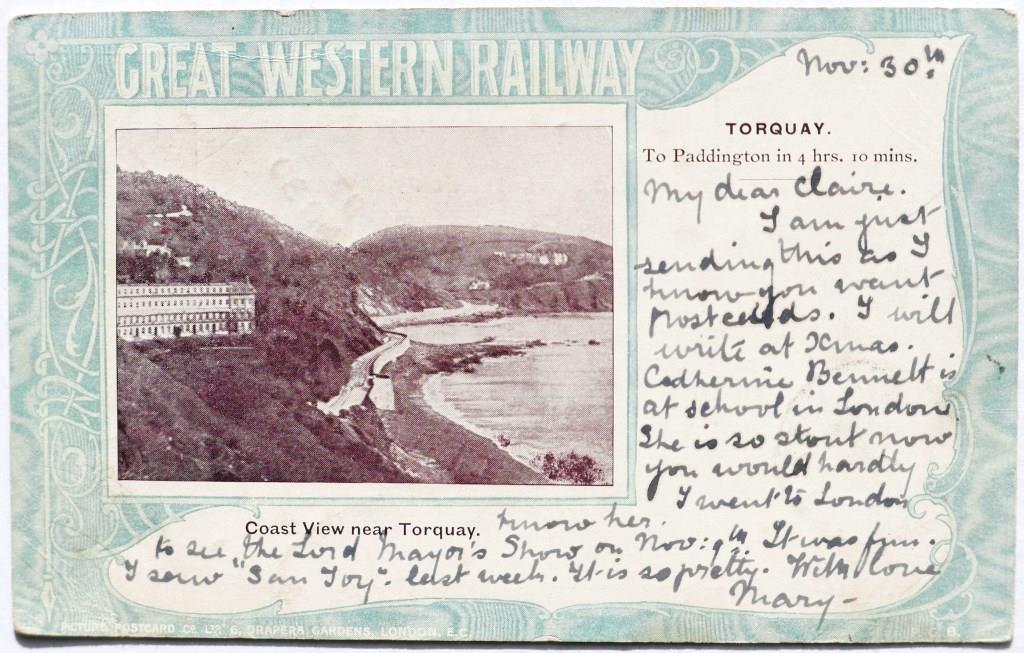 GREAT WESTERN RAILWAY
Nov: 30th
TORQUAY.
To Paddington in 4 hrs. 10 mins.
My dear Claire.
I am just
sending this as I
know you want
postcards. I will
write at Xmas.
Catherine Bennett is
at school in London
She is so stout now
you would hardly
know her.
I went to London
to see the Lord Mayor's Show on Nov: 9th It was fun.
I saw "San Toy". last week. It is so pretty. With love
Mary-
Coast View near Torquay.
PICTURE POSTCARD Co. LTD. 6, DRAPERS GARDENS, LONDON, E.C.
P. C. B.